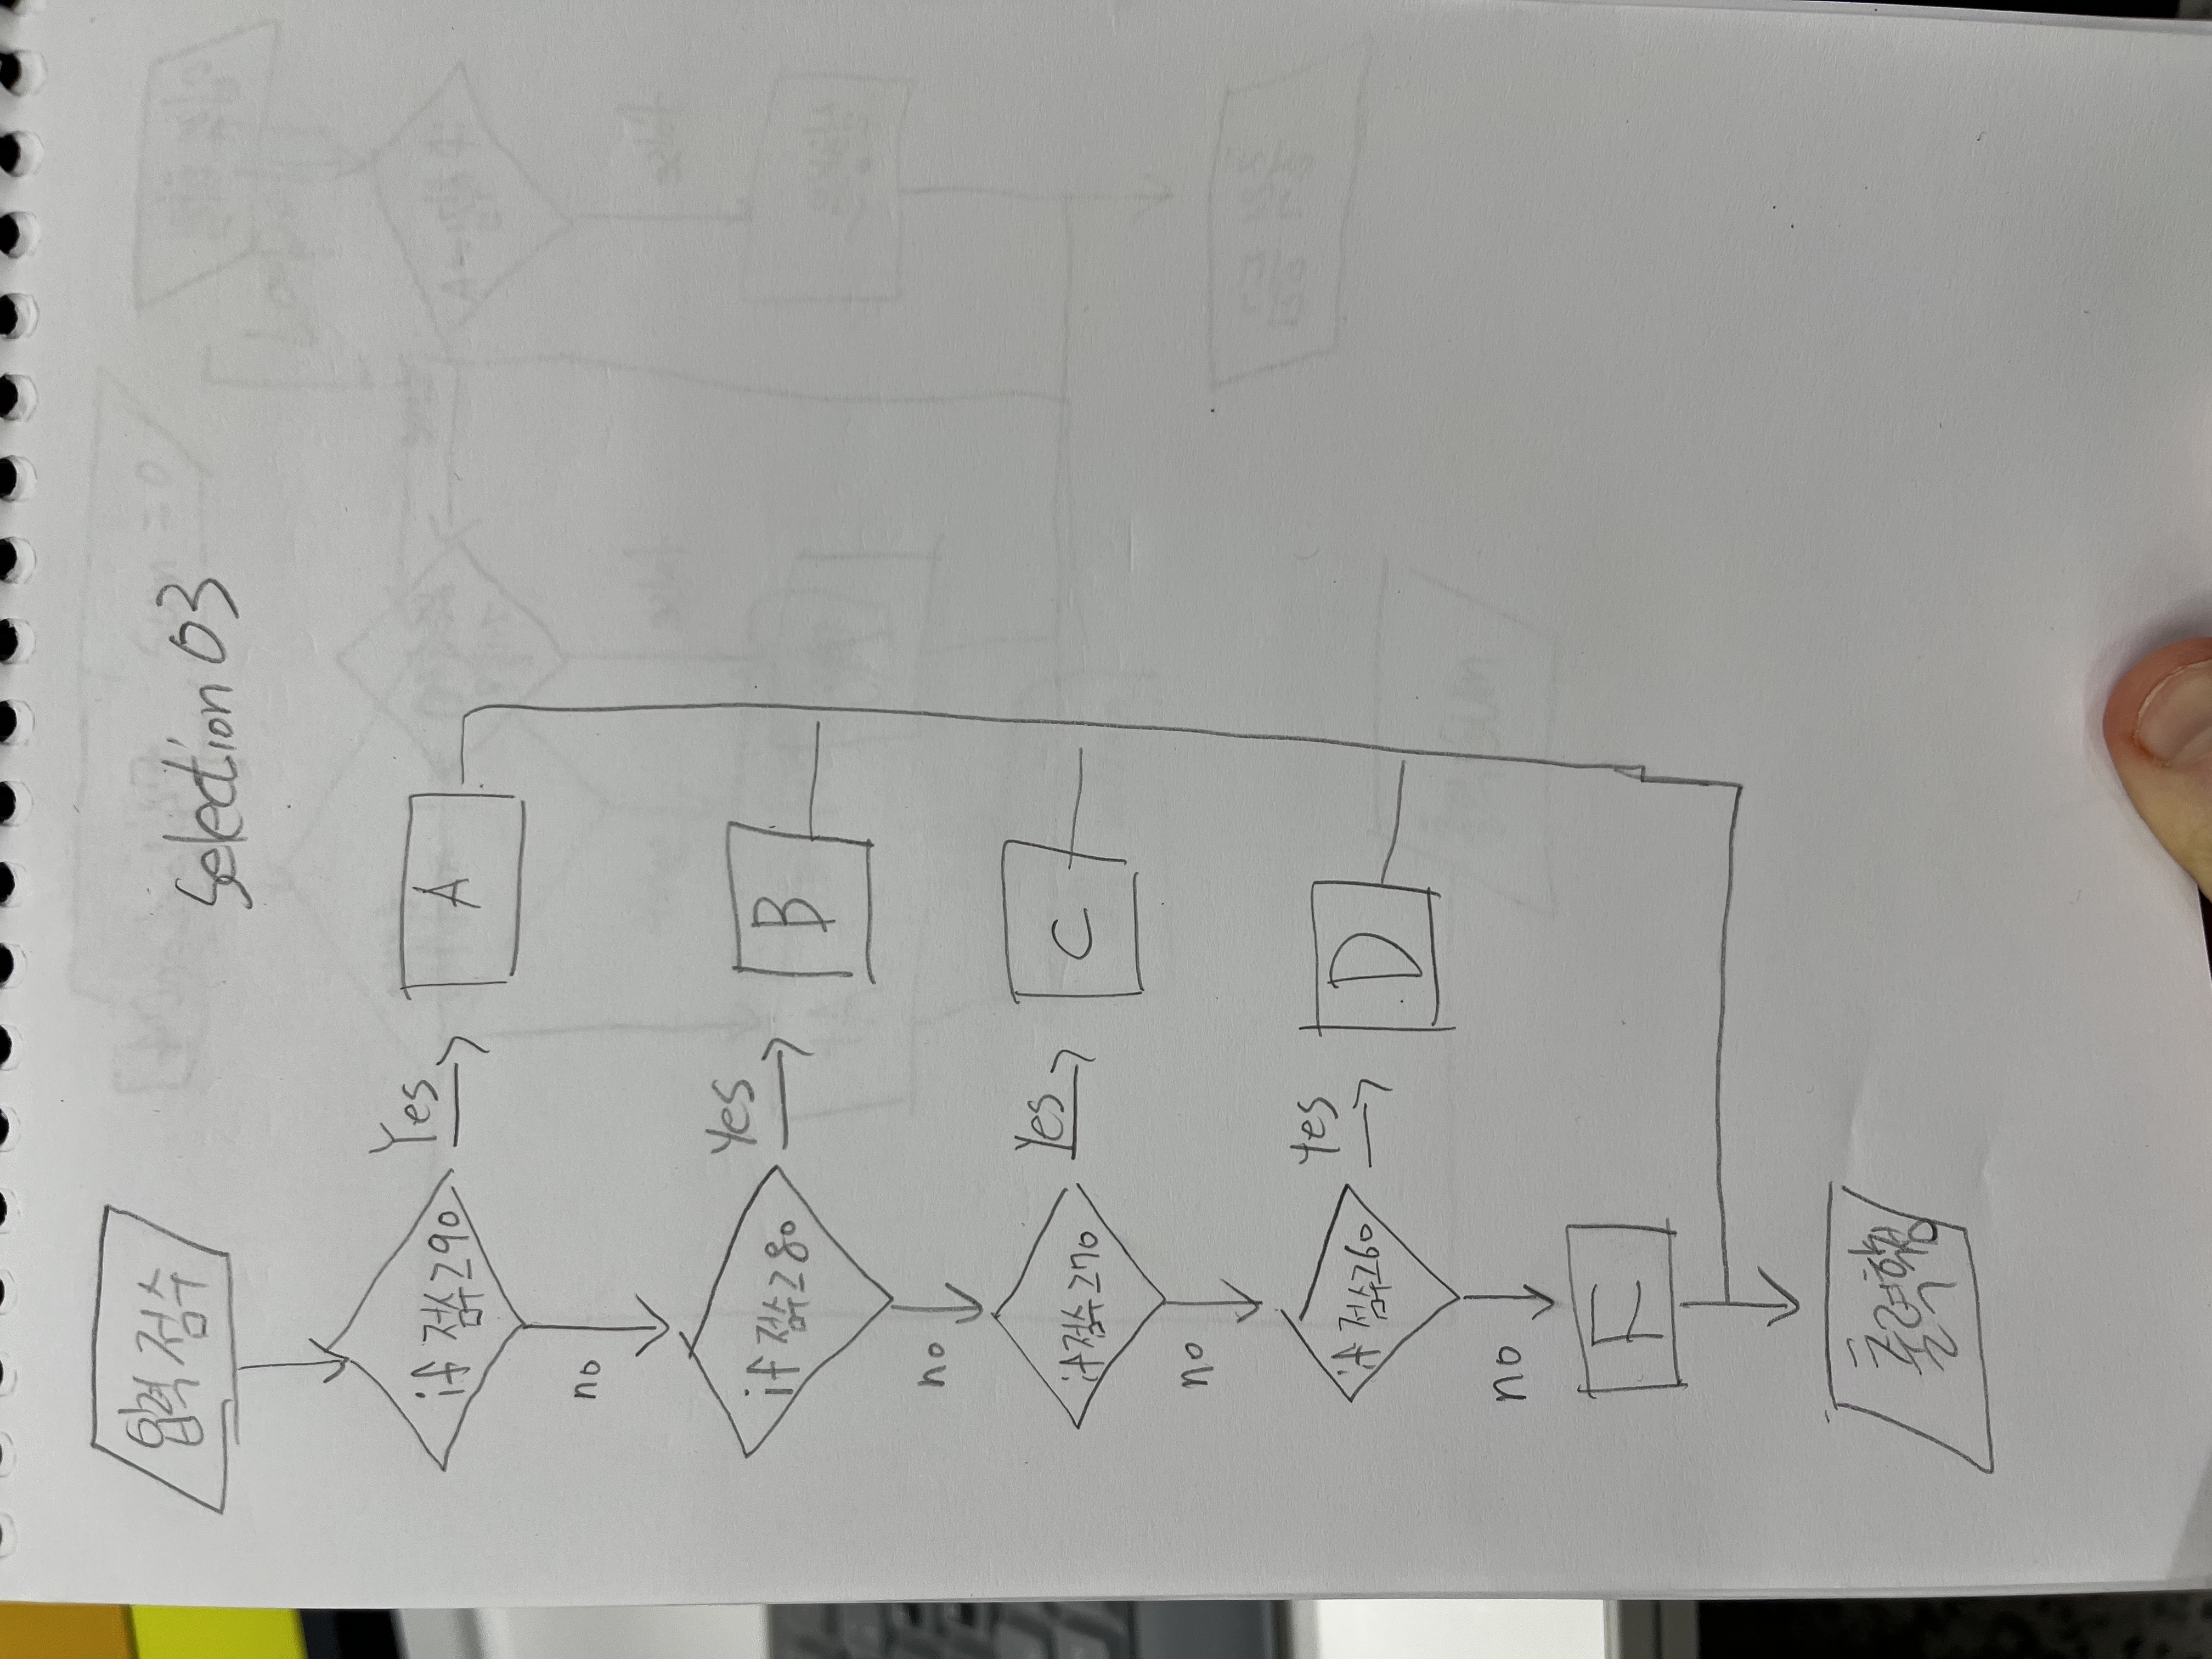 입력 점수
Selection 03
if 점수≥90
Yes
A
no
if 점수≥80
Yes
B
no
if 점수≥70
Yes
C
no
if 점수≥60
Yes
D
no
F
출력